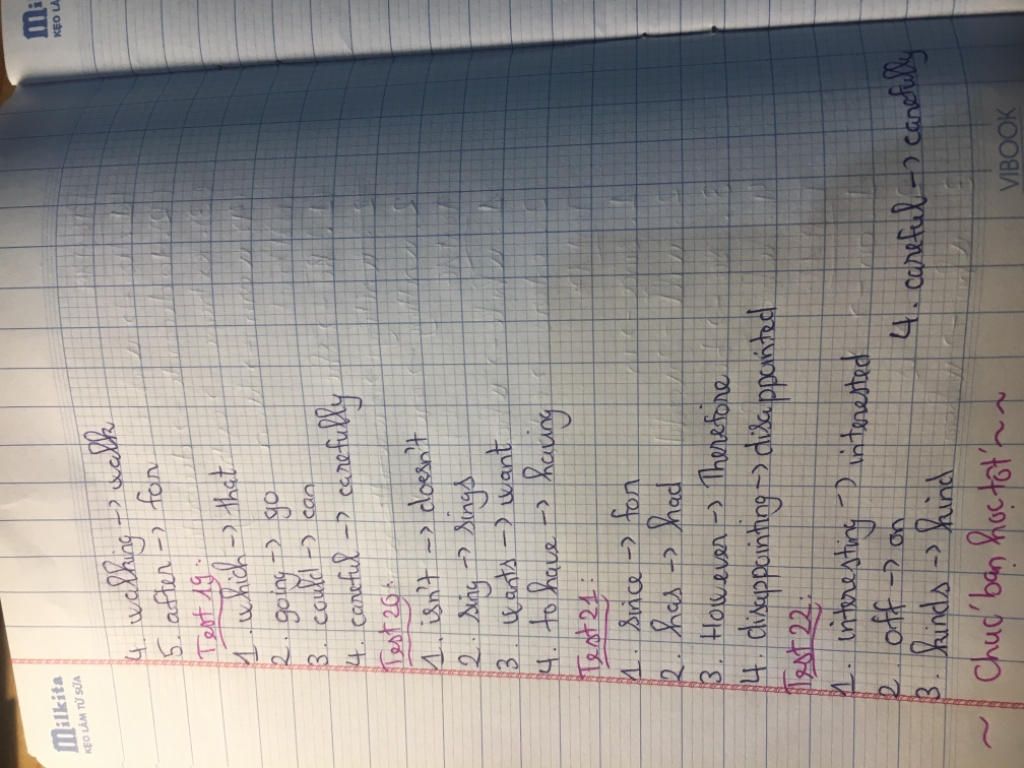 Milkita
KẸO LÀM TỪ SỮA
4. walking -> walk
5. after -> for
Test 19:
1. which -> that
2. going -> go
3. could -> can
4. careful -> carefully
Test 20:
1. isn't -> doesn't
2. sing -> sings
3. wants -> want
4. to have -> having
Test 21:
1. since -> for
2. has -> had
3. However -> Therefore
4. disappointing -> disappointed
Test 22:
1. interesting -> interested
2. off -> on
3. kinds -> kind 4. careful -> carefully
~ Chúc bạn học tốt ~~
VIBOOK